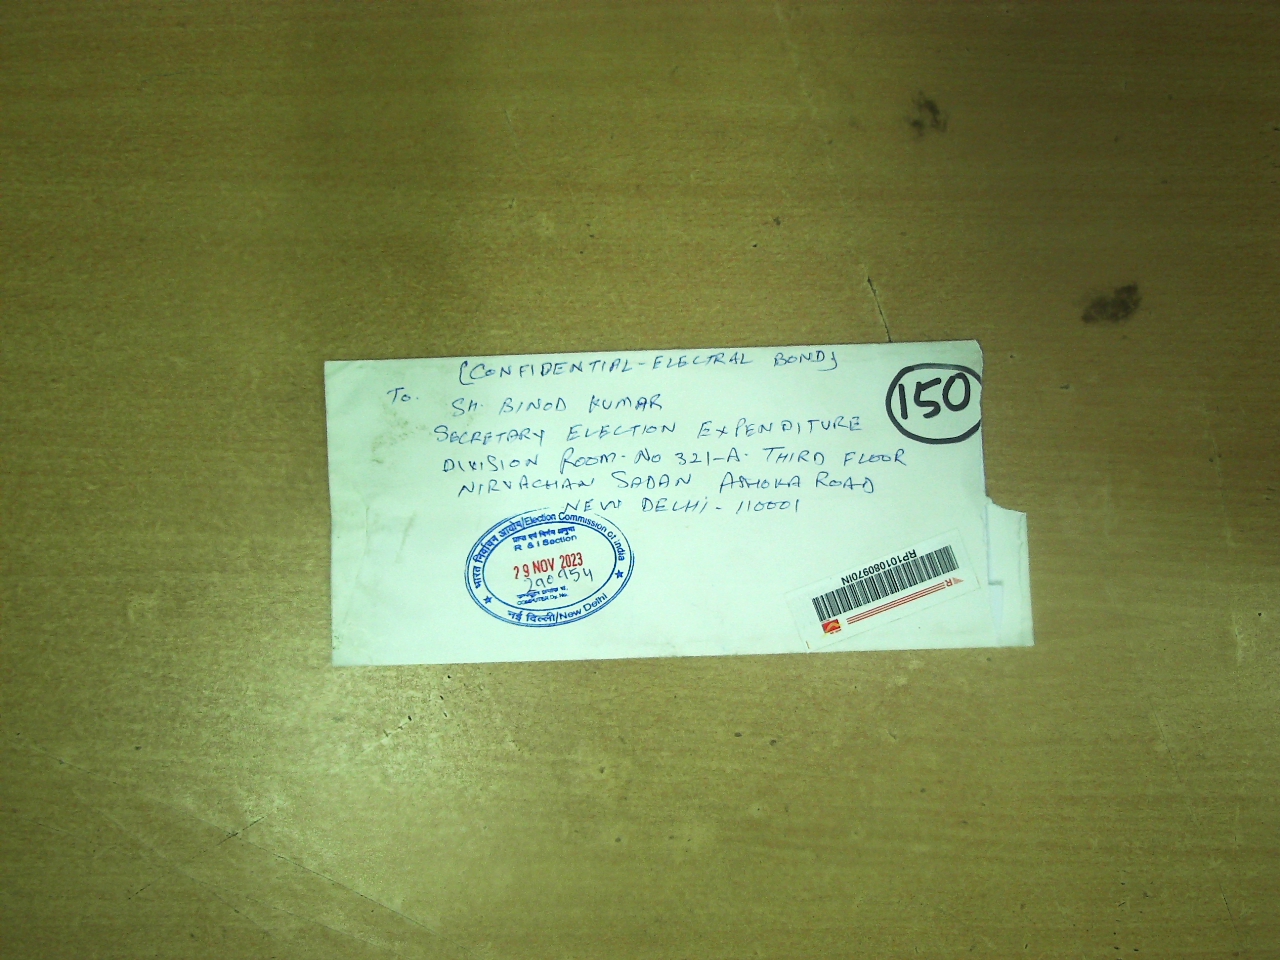 [CONFIDENTIAL-ELECTRAL BOND]
To.
SH. BINOD KUMAR
SECRETARY ELECTION EXPENDITURE
DIVISION ROOM-NO 321-A. THIRD FLOOR
NIRVACHAN SADAN ASHOKA ROAD
NEW DELHI - 110001
150
भारत निर्वाचन आयोग/Election Commission of India
R & I Section
29 NOV 2023
COMPUTER Dy. No.
नई दिल्ली/New Delhi
RP101080970IN
R